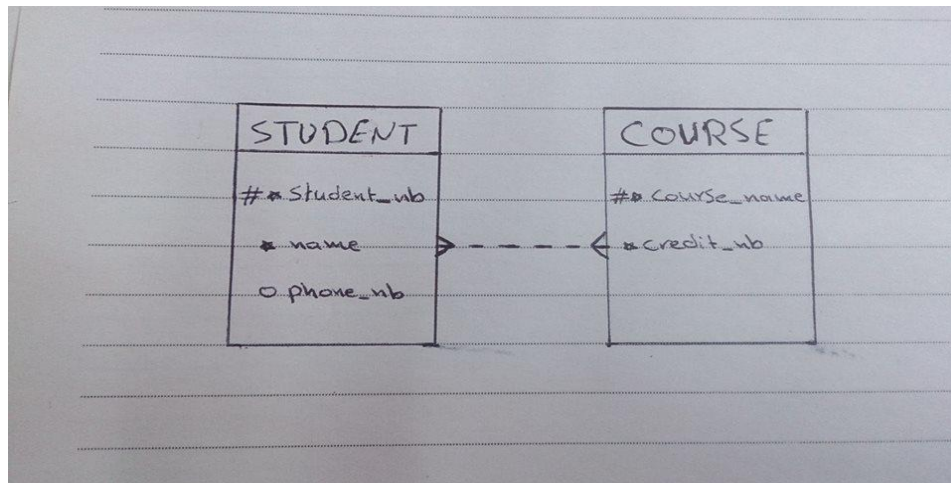 STUDENT
#* Student_nb
* name
o phone_nb
COURSE
#* course_name
* credit_nb